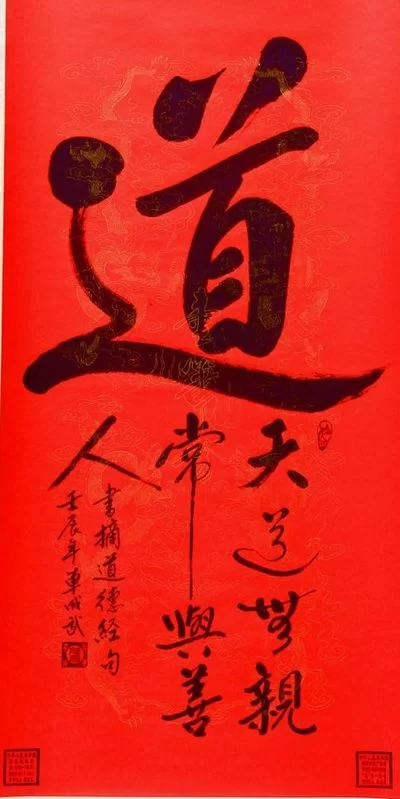 道
天道無親
常與善
人
書摘道德經句
壬辰年車成武